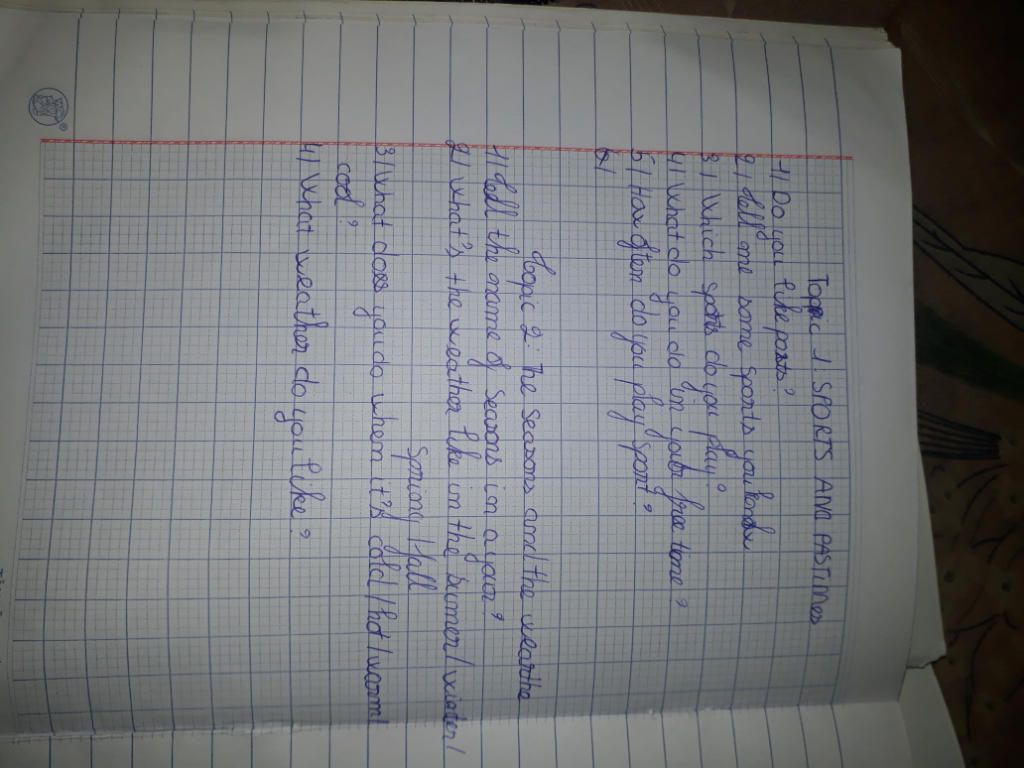 Topic 1. SPORTS AND PASTIMES
1) Do you like ports?
2) Tell me some sports you know
3) Which sports do you play?
4) What do you do in your free time?
5) How often do you play sport?
6)
Topic 2: The seasons and the wearthe
1) Tell the name of seasons in a year?
2) What's the weather like in the sumer / winter /
Spring / fall
3) What does you do when it's cold / hot / warm /
cool?
4) What weather do you like?